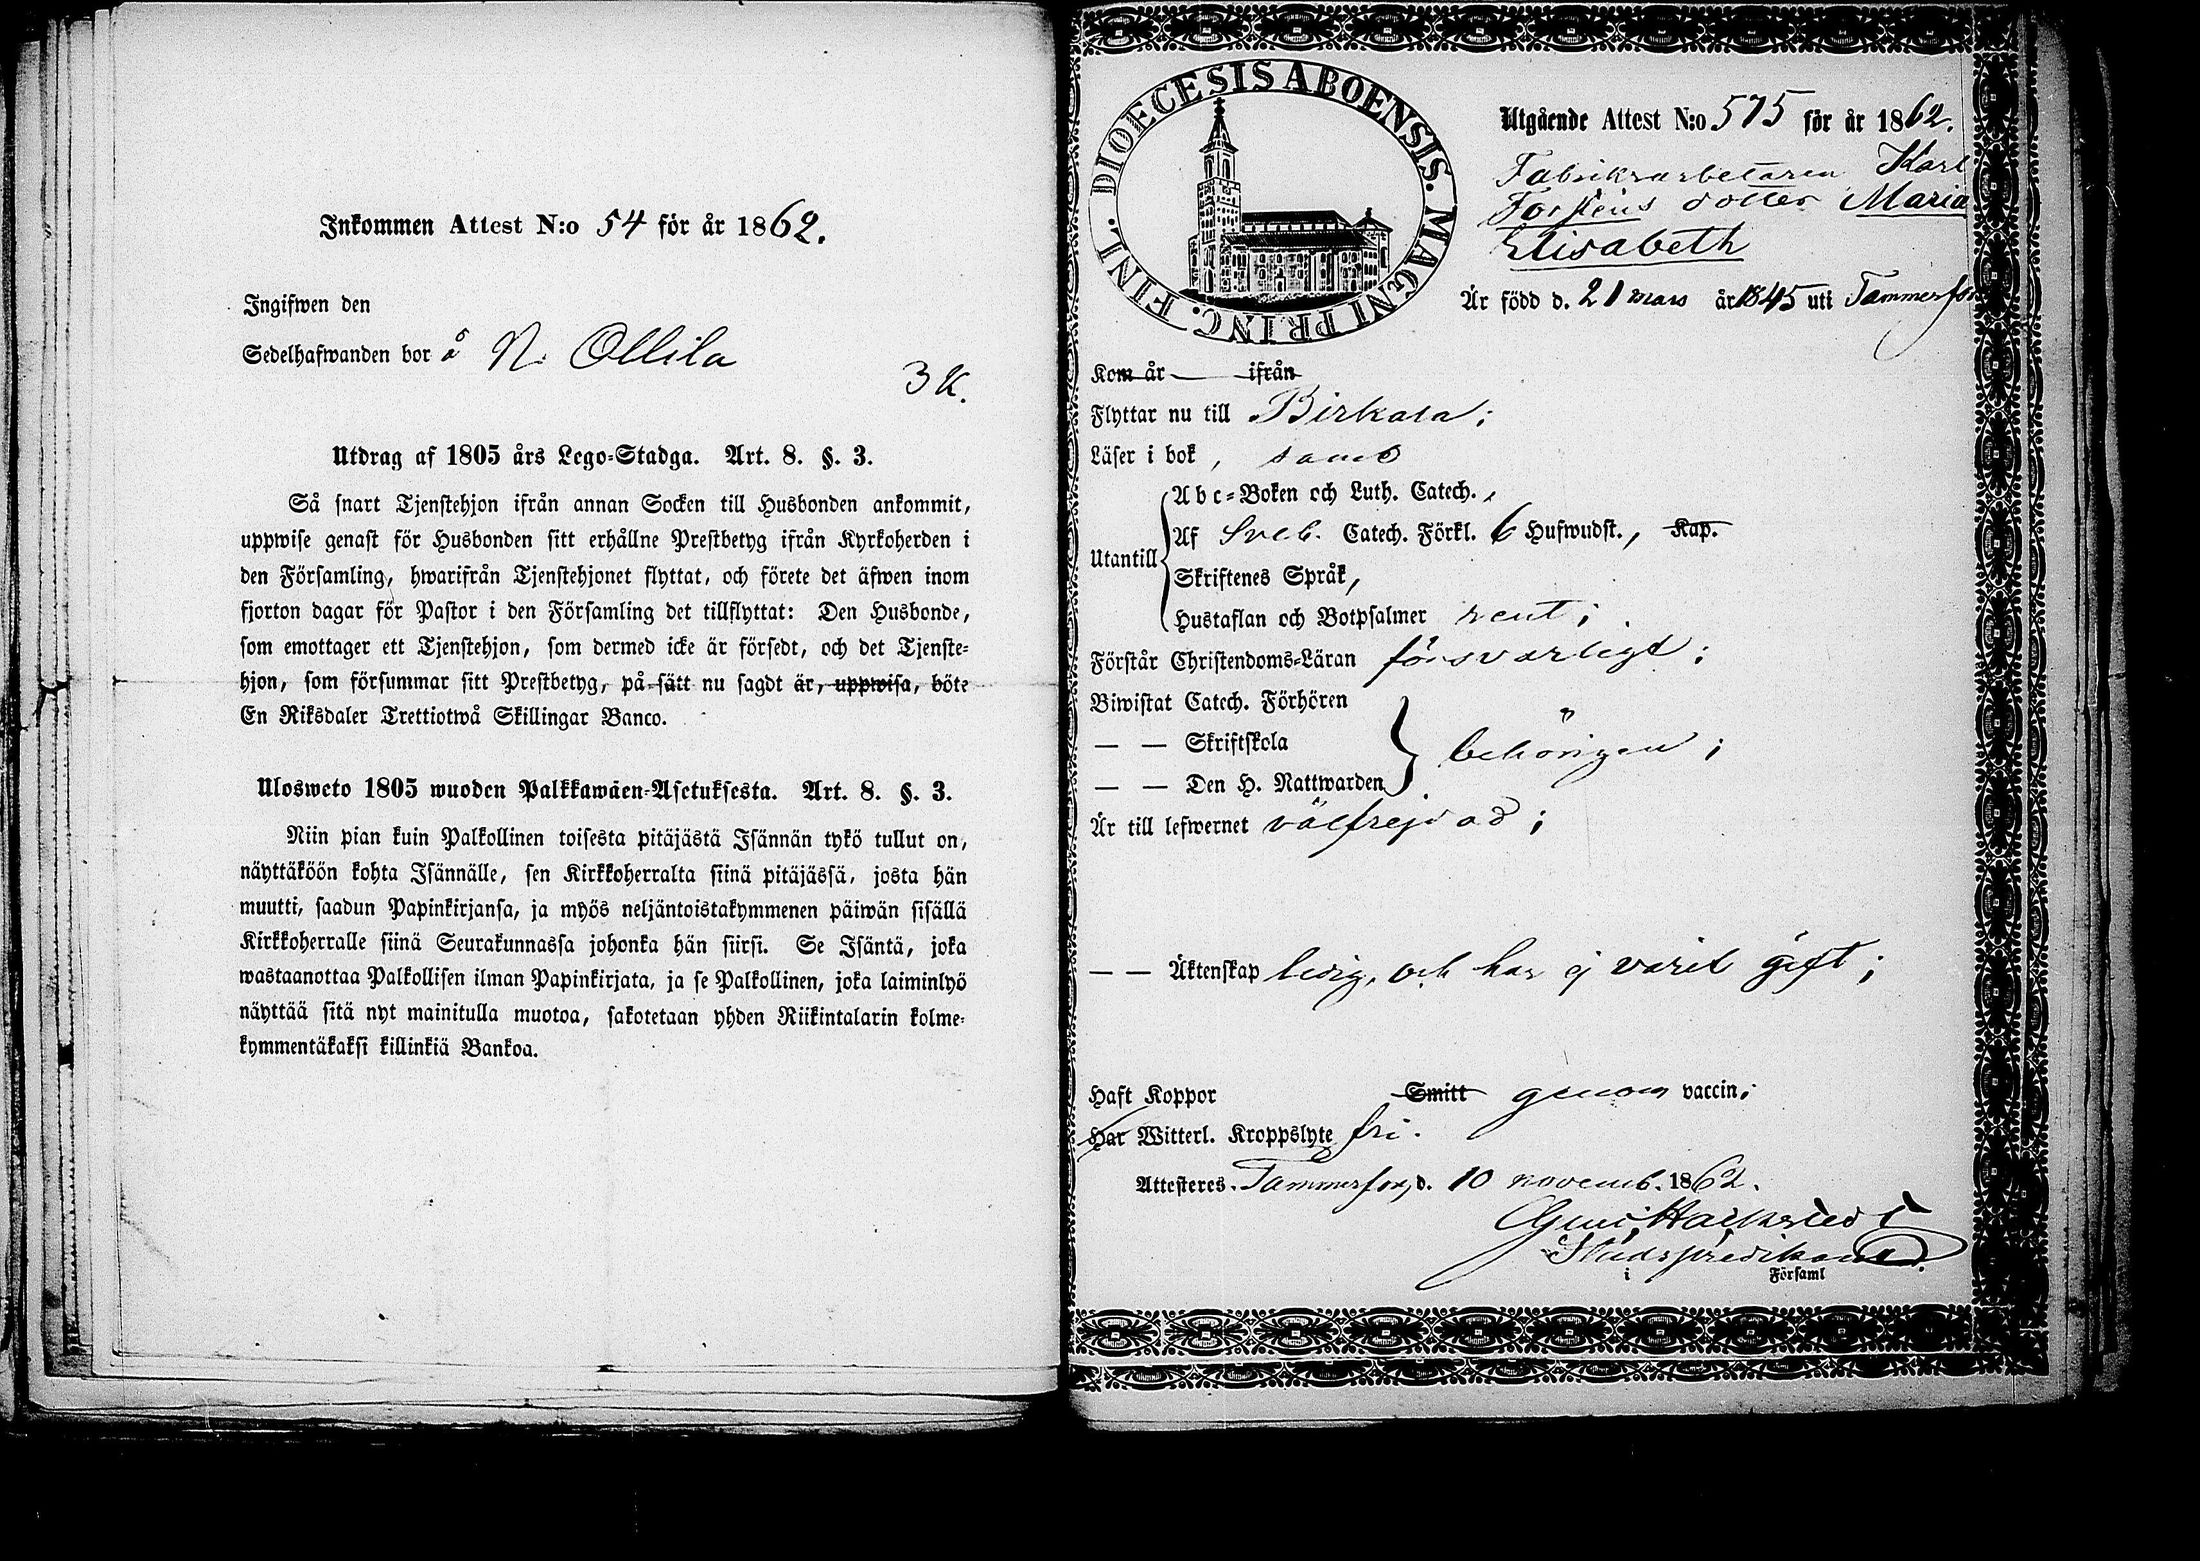 Inkommen Attest N:o 54 för år 1862.
Ingifwen den
Sedelhafwanden bor å N. Ollila
3 K.
Utdrag af 1805 års Lego-Stadga. Art. 8. §. 3.
Så snart Tjenstehjon ifrån annan Socken till Husbonden ankommit,
uppwise genast för Husbonden sitt erhållne Prestbetyg ifrån Kyrkoherden i
den Församling, hwarifrån Tjenstehjonet flyttat, och förete det äfwen inom
fjorton dagar för Pastor i den Församling det tillflyttat: Den Husbonde,
som emottager ett Tjenstehjon, som dermed icke är försedt, och det Tjenste-
hjon, som försummar sitt Prestbetyg, på sätt nu sagdt är, uppwisa, böte
En Riksdaler Trettiotwå Skillingar Banco.
Ulosweto 1805 wuoden Palkkawäen-Asetuksesta. Art. 8. §. 3.
Niin pian kuin Palkollinen toisesta pitäjästä Isännän tykö tullut on,
näyttäköön kohta Isännälle, sen Kirkkoherralta siinä pitäjässä, josta hän
muutti, saadun Papinkirjansa, ja myös neljäntoistakymmenen päiwän sisällä
Kirkkoherralle siinä Seurakunnassa johonka hän siirsi. Se Isäntä, joka
wastaanottaa Palkollisen ilman Papinkirjata, ja se Palkollinen, joka laiminlyö
näyttää sitä nyt mainitulla muotoa, sakotetaan yhden Riikintalarin kolme-
kymmentäkaksi killinkiä Bankoa.
DIOECESIS ABOENSIS. MAGNI PRINC. FINL.
Utgående Attest N:o 575 för år 1862.
Fabriksarbetaren Karl
Forstens dotter Maria
Elisabeth
Är född d. 21 mars år 1845 uti Tammerfors
Kom år ifrån
Flyttar nu till Birkala;
Läser i bok, samt
Abc-Boken och Luth. Catech.,
Utantill Af Sveb. Catech. Förkl. 6 Hufwudst., Kap.
Skriftenes Språk,
Hustaflan och Botpsalmer rent;
Förstår Christendoms-Läran försvarligt;
Biwistat Catech. Förhören
— — Skriftskola behörigen;
— — Den H. Nattwarden
Är till lefwernet välfrejdad;
— — Äktenskap ledig, och har ej varit gift;
Haft Koppor Smitt genom vaccin;
Har Witterl. Kroppslyte fri.
Attesteres. Tammerfors, d. 10 novemb. 1862.
Stadspredikant
i Församl